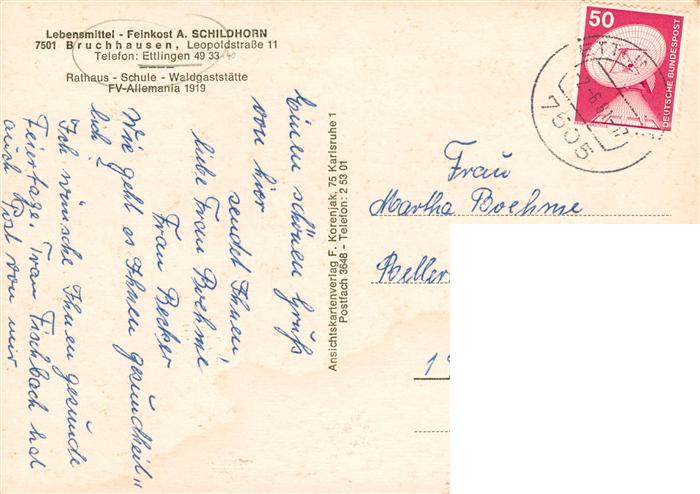 Lebensmittel - Feinkost A. SCHILDHORN
7501 Bruchhausen, Leopoldstraße 11
Telefon: Ettlingen 49 33
Rathaus - Schule - Waldgaststätte
FV-Allemania 1919
Einen schönen Gruß
von hier
sendet Ihnen
liebe Frau Boehme!
Frau Becker
Wie geht es Ihnen gesundheit"
lich?
Ich wünsche Ihnen gesunde
Feiertage. Frau Fischbach hat
auch Post von mir.
Ansichtskartenverlag F. Korenjak, 75 Karlsruhe 1
Postfach 3648 - Telefon: 2 53 01
50
DEUTSCHE BUNDESPOST
7505
Frau
Martha Boehme
Beller
1